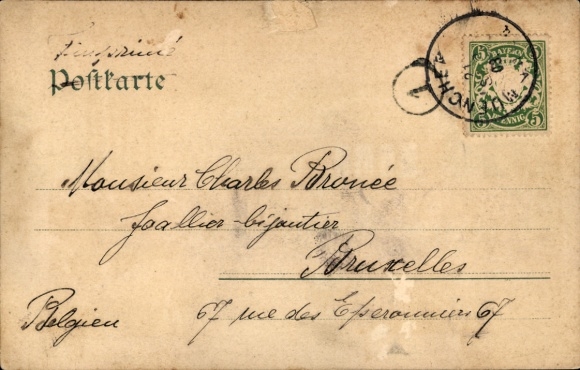 Imprimé
Postkarte
BAYERN
5 5
PFENNIG
5 5
MÜNCHEN
1
Monsieur Charles Bronée
Joallier-bijoutier
Bruxelles
Belgien 67 rue des Eperonniers 67